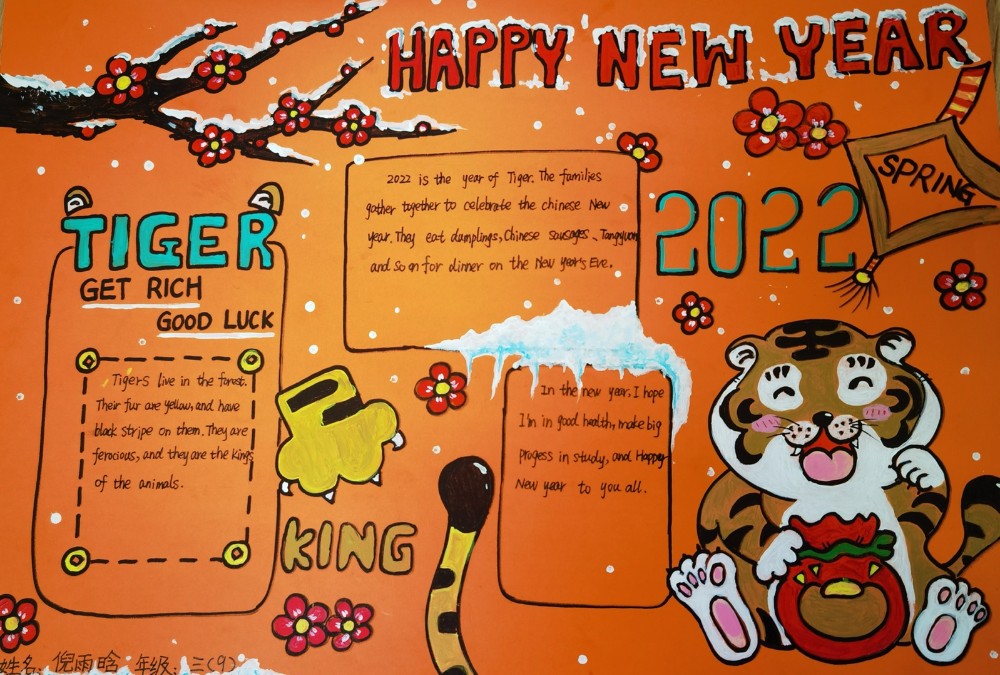 HAPPY NEW YEAR
SPRING
2022
2022 is the year of Tiger. The families
gather together to celebrate the chinese New
year. They eat dumplings, Chinese sausages、Tangyuan
and so on for dinner on the New year's Eve.
TIGER
GET RICH
GOOD LUCK
Tigers live in the forest.
Their fur are yellow, and have
black stripe on them. They are
ferocious, and they are the kings
of the animals.
KING
In the new year, I hope
I'm in good health, make big
progess in study, and Happy
New year to you all.
姓名: 倪雨晗 年级: 三(9)